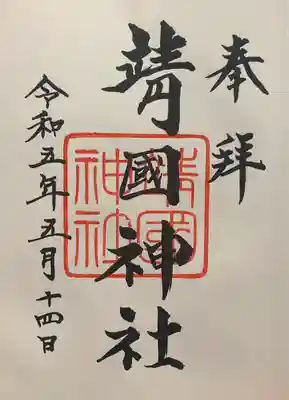 奉拜
靖國神社
靖國神社
令和五年五月十四日